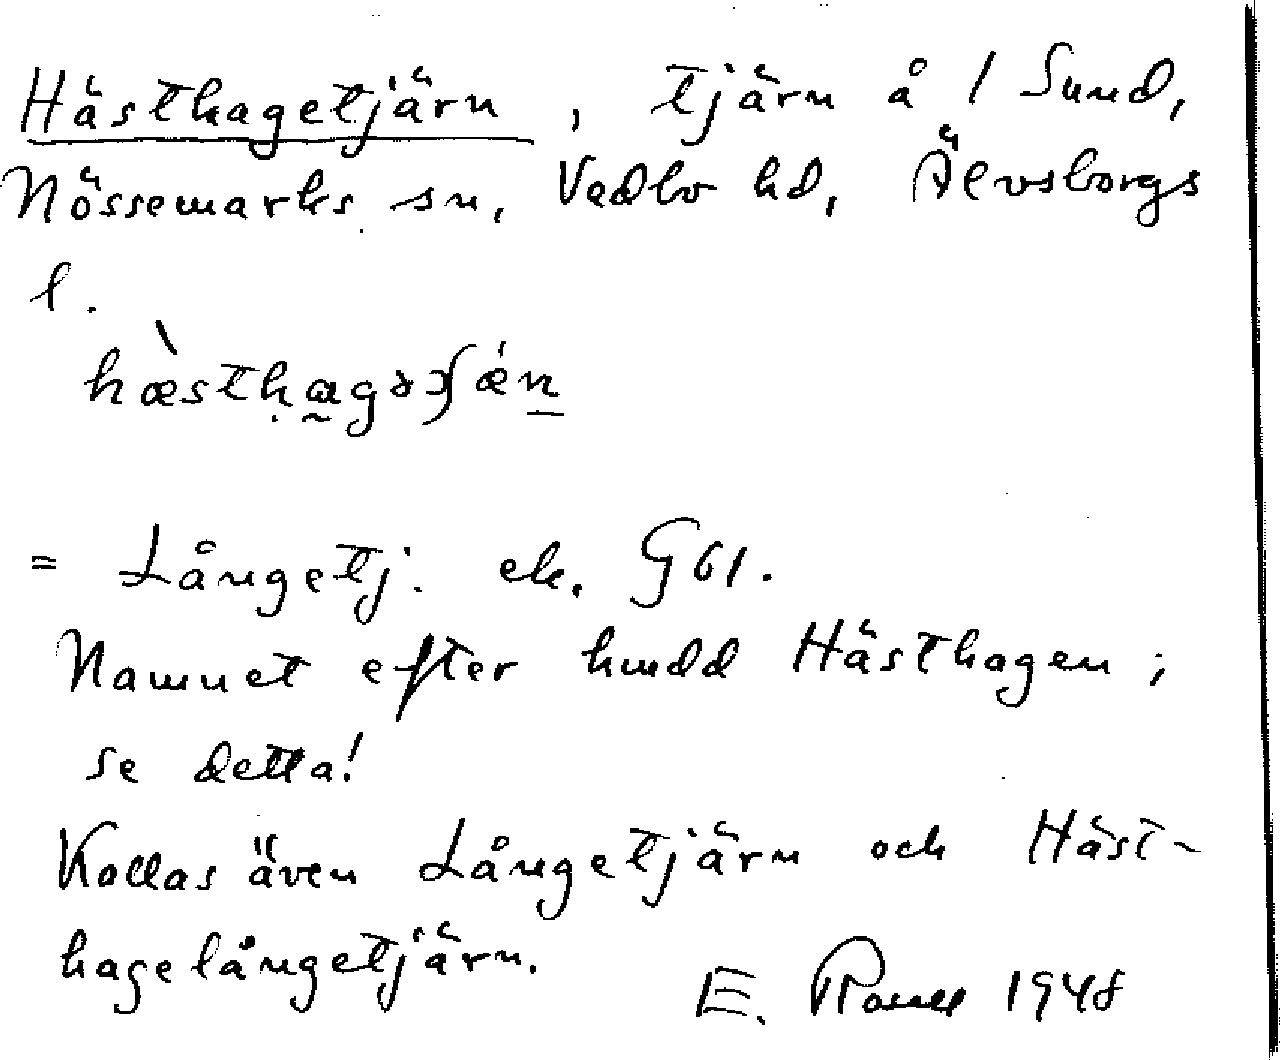 Hästhagetjärn, tjärn å 1 Sund,
Nössemarks sn, Vedbo hd, Älvsborgs
l.
= Långetj. ek. G61.
Namnet efter hmdd Hästhagen;
se detta!
Kallas även Långetjärn och Häst-
hagelångetjärn.
E. 1948